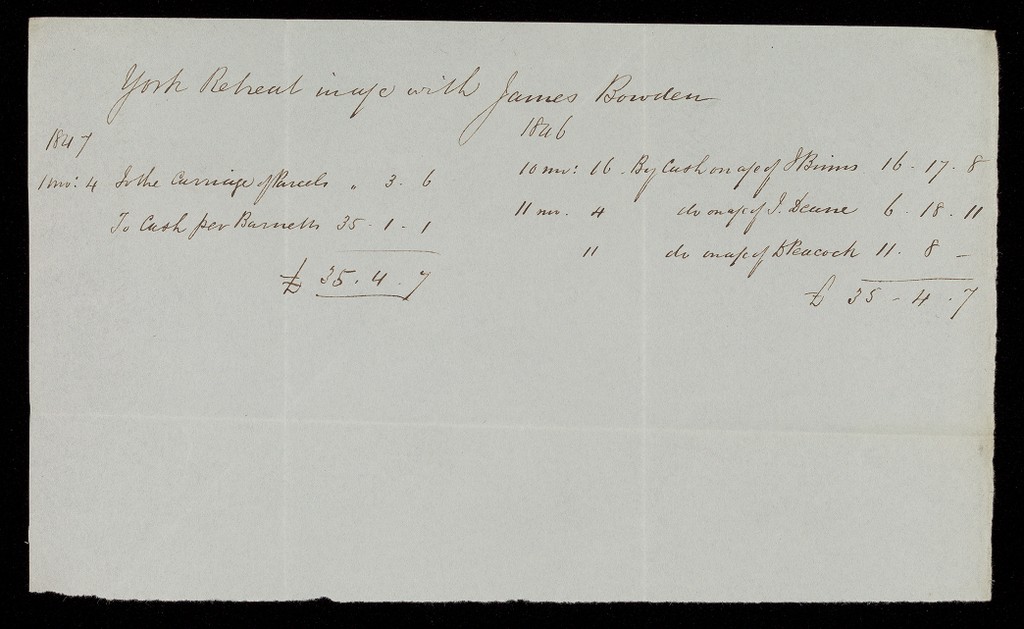 York Retreat in a/c with James Bowden
1847
1 mo: 4 To the Carriage of Parcels „ 3 . 6
To Cash per Barnetts 35 . 1 . 1
£ 35 . 4 . 7
1846
10 mo: 16 . By Cash on a/c of J Binns 16 . 17 . 8
11 mo . 4 do on a/c of J. Deane 6 . 18 . 11
11 do on a/c of D Peacock 11 . 8 –
£ 35 – 4 . 7